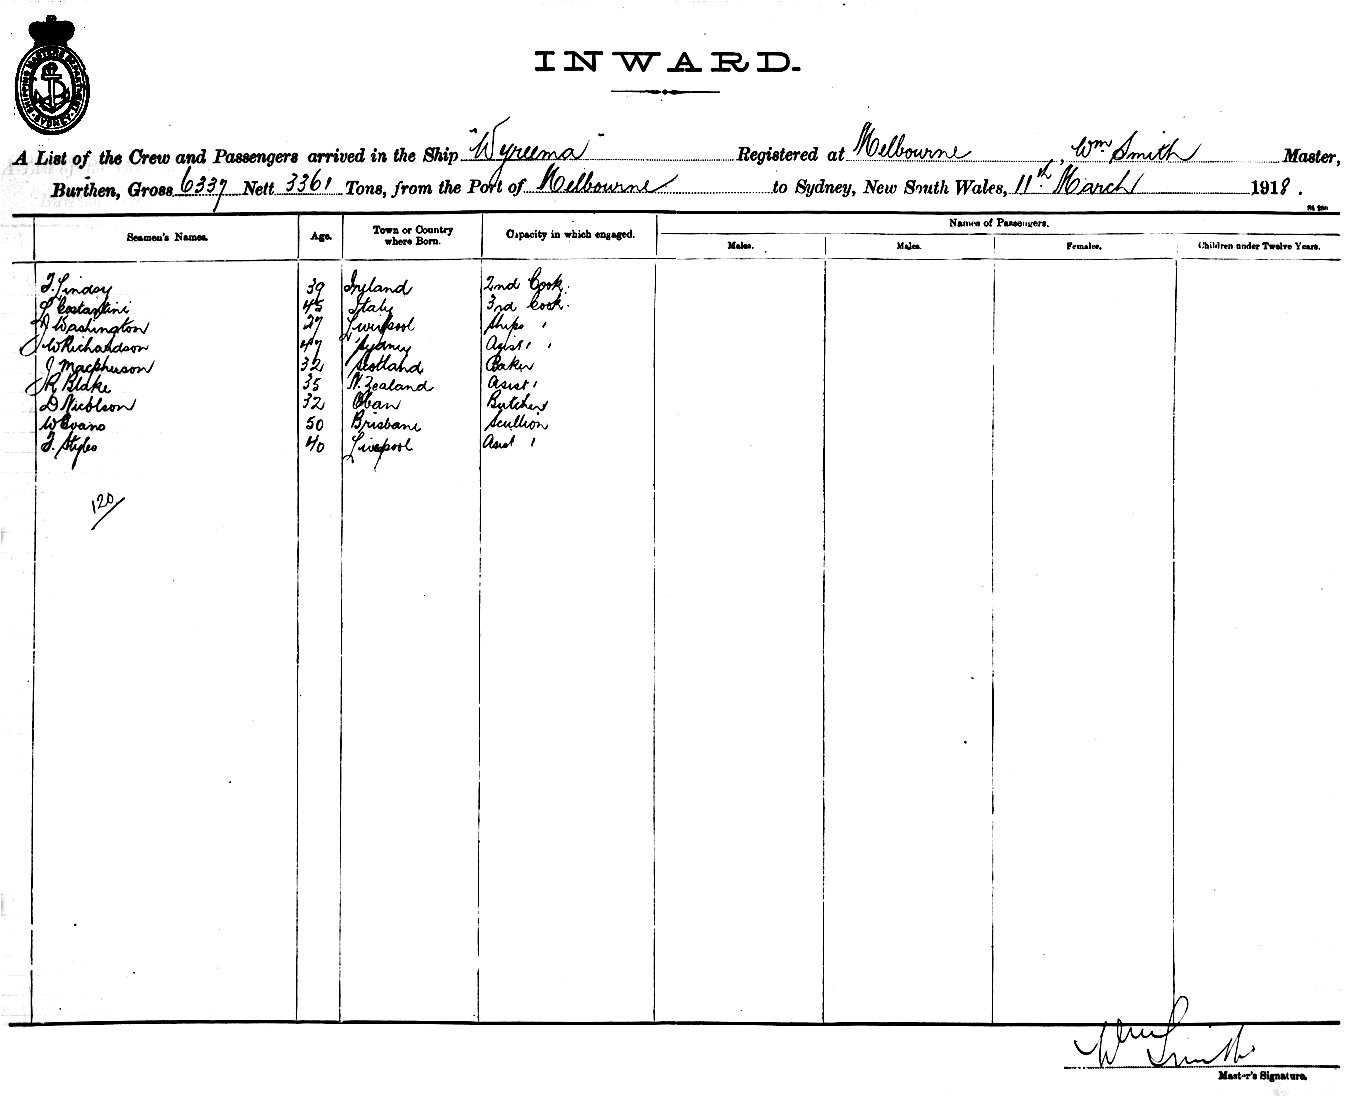 SHIPPING MASTERS DEPARTMENT SYDNEY
INWARD.
A List of the Crew and Passengers arrived in the Ship "Wyreema" Registered at Melbourne, Wm Smith Master,
Burthen, Gross 6337 Nett 3361 Tons, from the Port of Melbourne to Sydney, New South Wales, 11th March 1918.
Names of Passengers.
Seamen's Names. Age. Town or Country where Born. Capacity in which engaged. Males. Males. Females. Children under Twelve Years.
F. Lindsy 39 Ireland 2nd Cook.
Costantini 45 Italy 3rd Cook.
J Washington 27 Liverpool Ships "
J W Richardson 47 Sydney Assist " "
J Macpherson 32 Scotland Baker
J R Blake 35 N. Zealand Asist "
D Nicolson 32 Oban Butcher
W Evans 50 Brisbane Scullion
F. Styles 40 Liverpool Asist "
120
Wm Smith
Master's Signature.